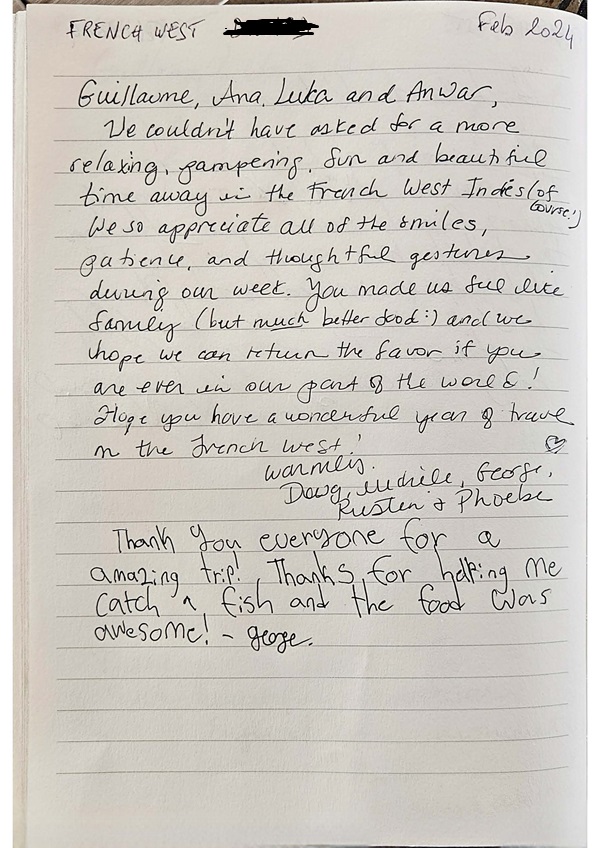 FRENCH WEST Feb 2024
Guillaume, Ana, Luka and Anwar,
We couldn't have asked for a more
relaxing, pampering, fun and beautiful
time away in the French West Indies (of
course!)
We so appreciate all of the smiles,
patience, and thoughtful gestures
during our week. You made us feel like
family (but much better food :) and we
hope we can return the favor if you
are ever in our part of the world!
Hope you have a wonderful year of travel
in the French West! ♡
Warmly,
Doug, Michele, George,
Kirsten & Phoebe
Thank you everyone for a
amazing trip! Thanks for helping me
catch a fish and the food was
awesome! - george.